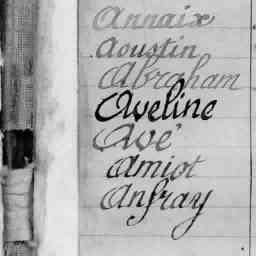 Annaix
Aoustin
Abraham
Aveline
Avé
Amiot
Anfray